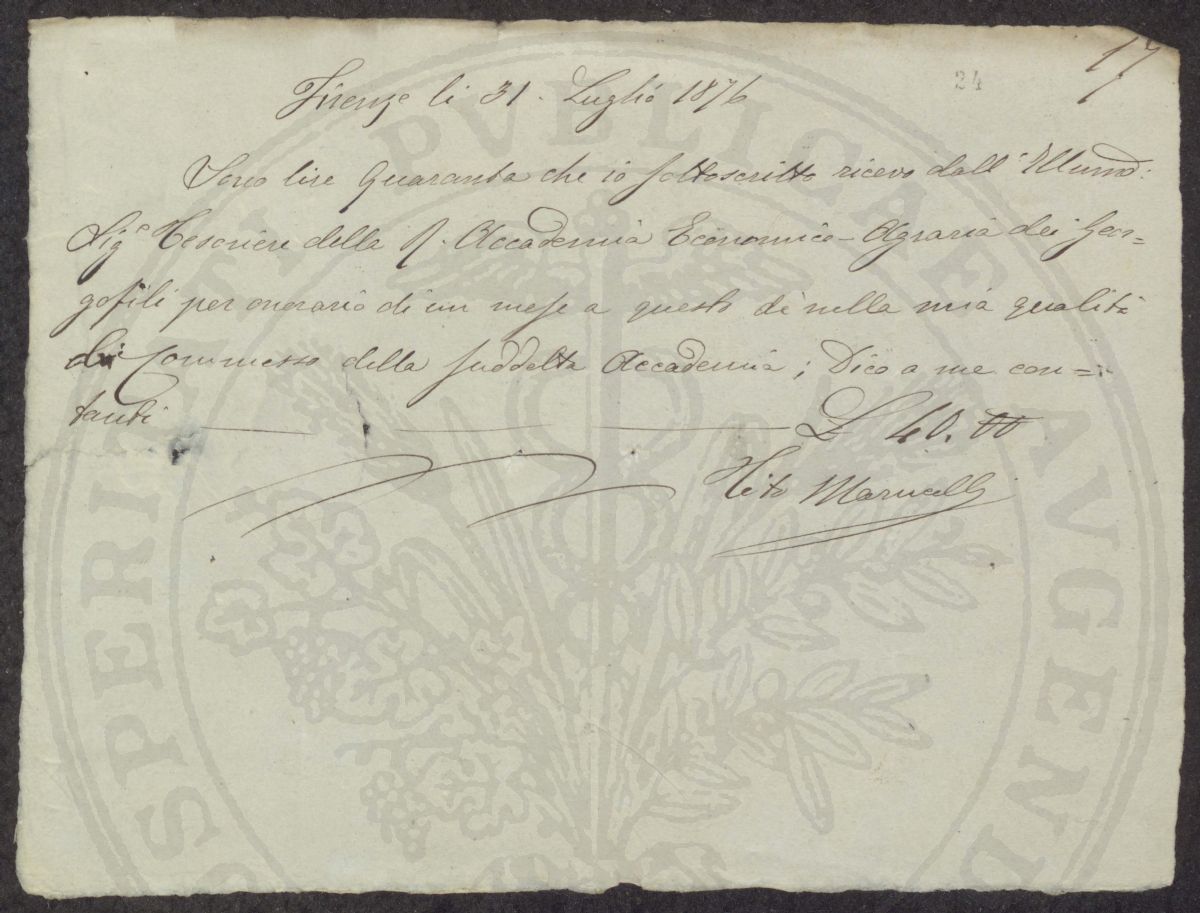 17
24
Firenze li 31. Luglio 1876
Sono lire Quaranta che io sottoscritto ricevo dall'Illumo:
Sige Tesoriere della R. Accademia Economico-Agraria dei Geor=
gofili per onorario di un mese a questo dì nella mia qualità
di Commesso della suddetta Accademia; Dico a me con=
tanti L 40. 00
Marucelli
PROSPERITATI PVBLICAE AVGENDAE